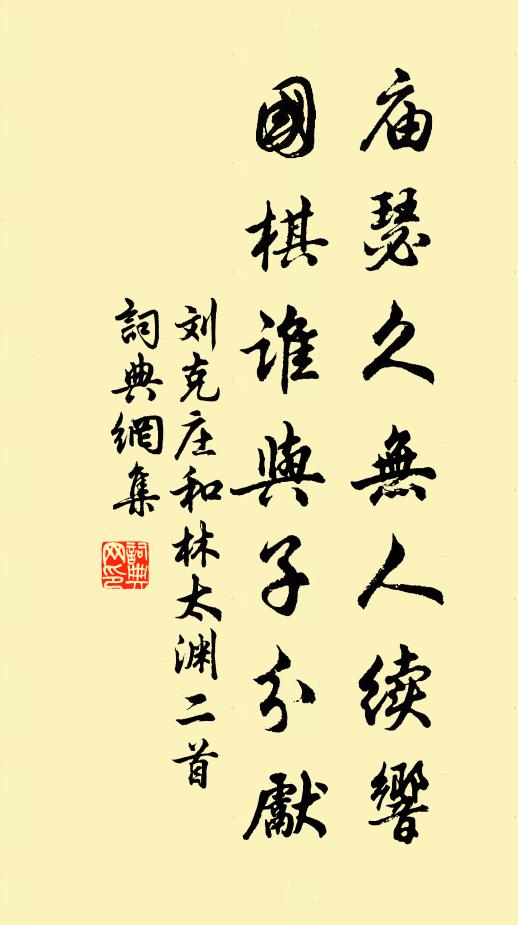 庙瑟久無人续響
國棋谁與子分獻
刘克庄和林太渊二首
詞典網集
詞典网印